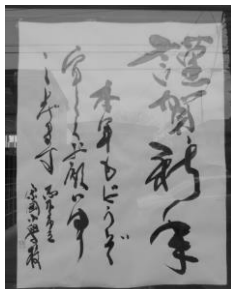 謹賀新年
本年もどうぞ
宜しくお願い申
し上げます